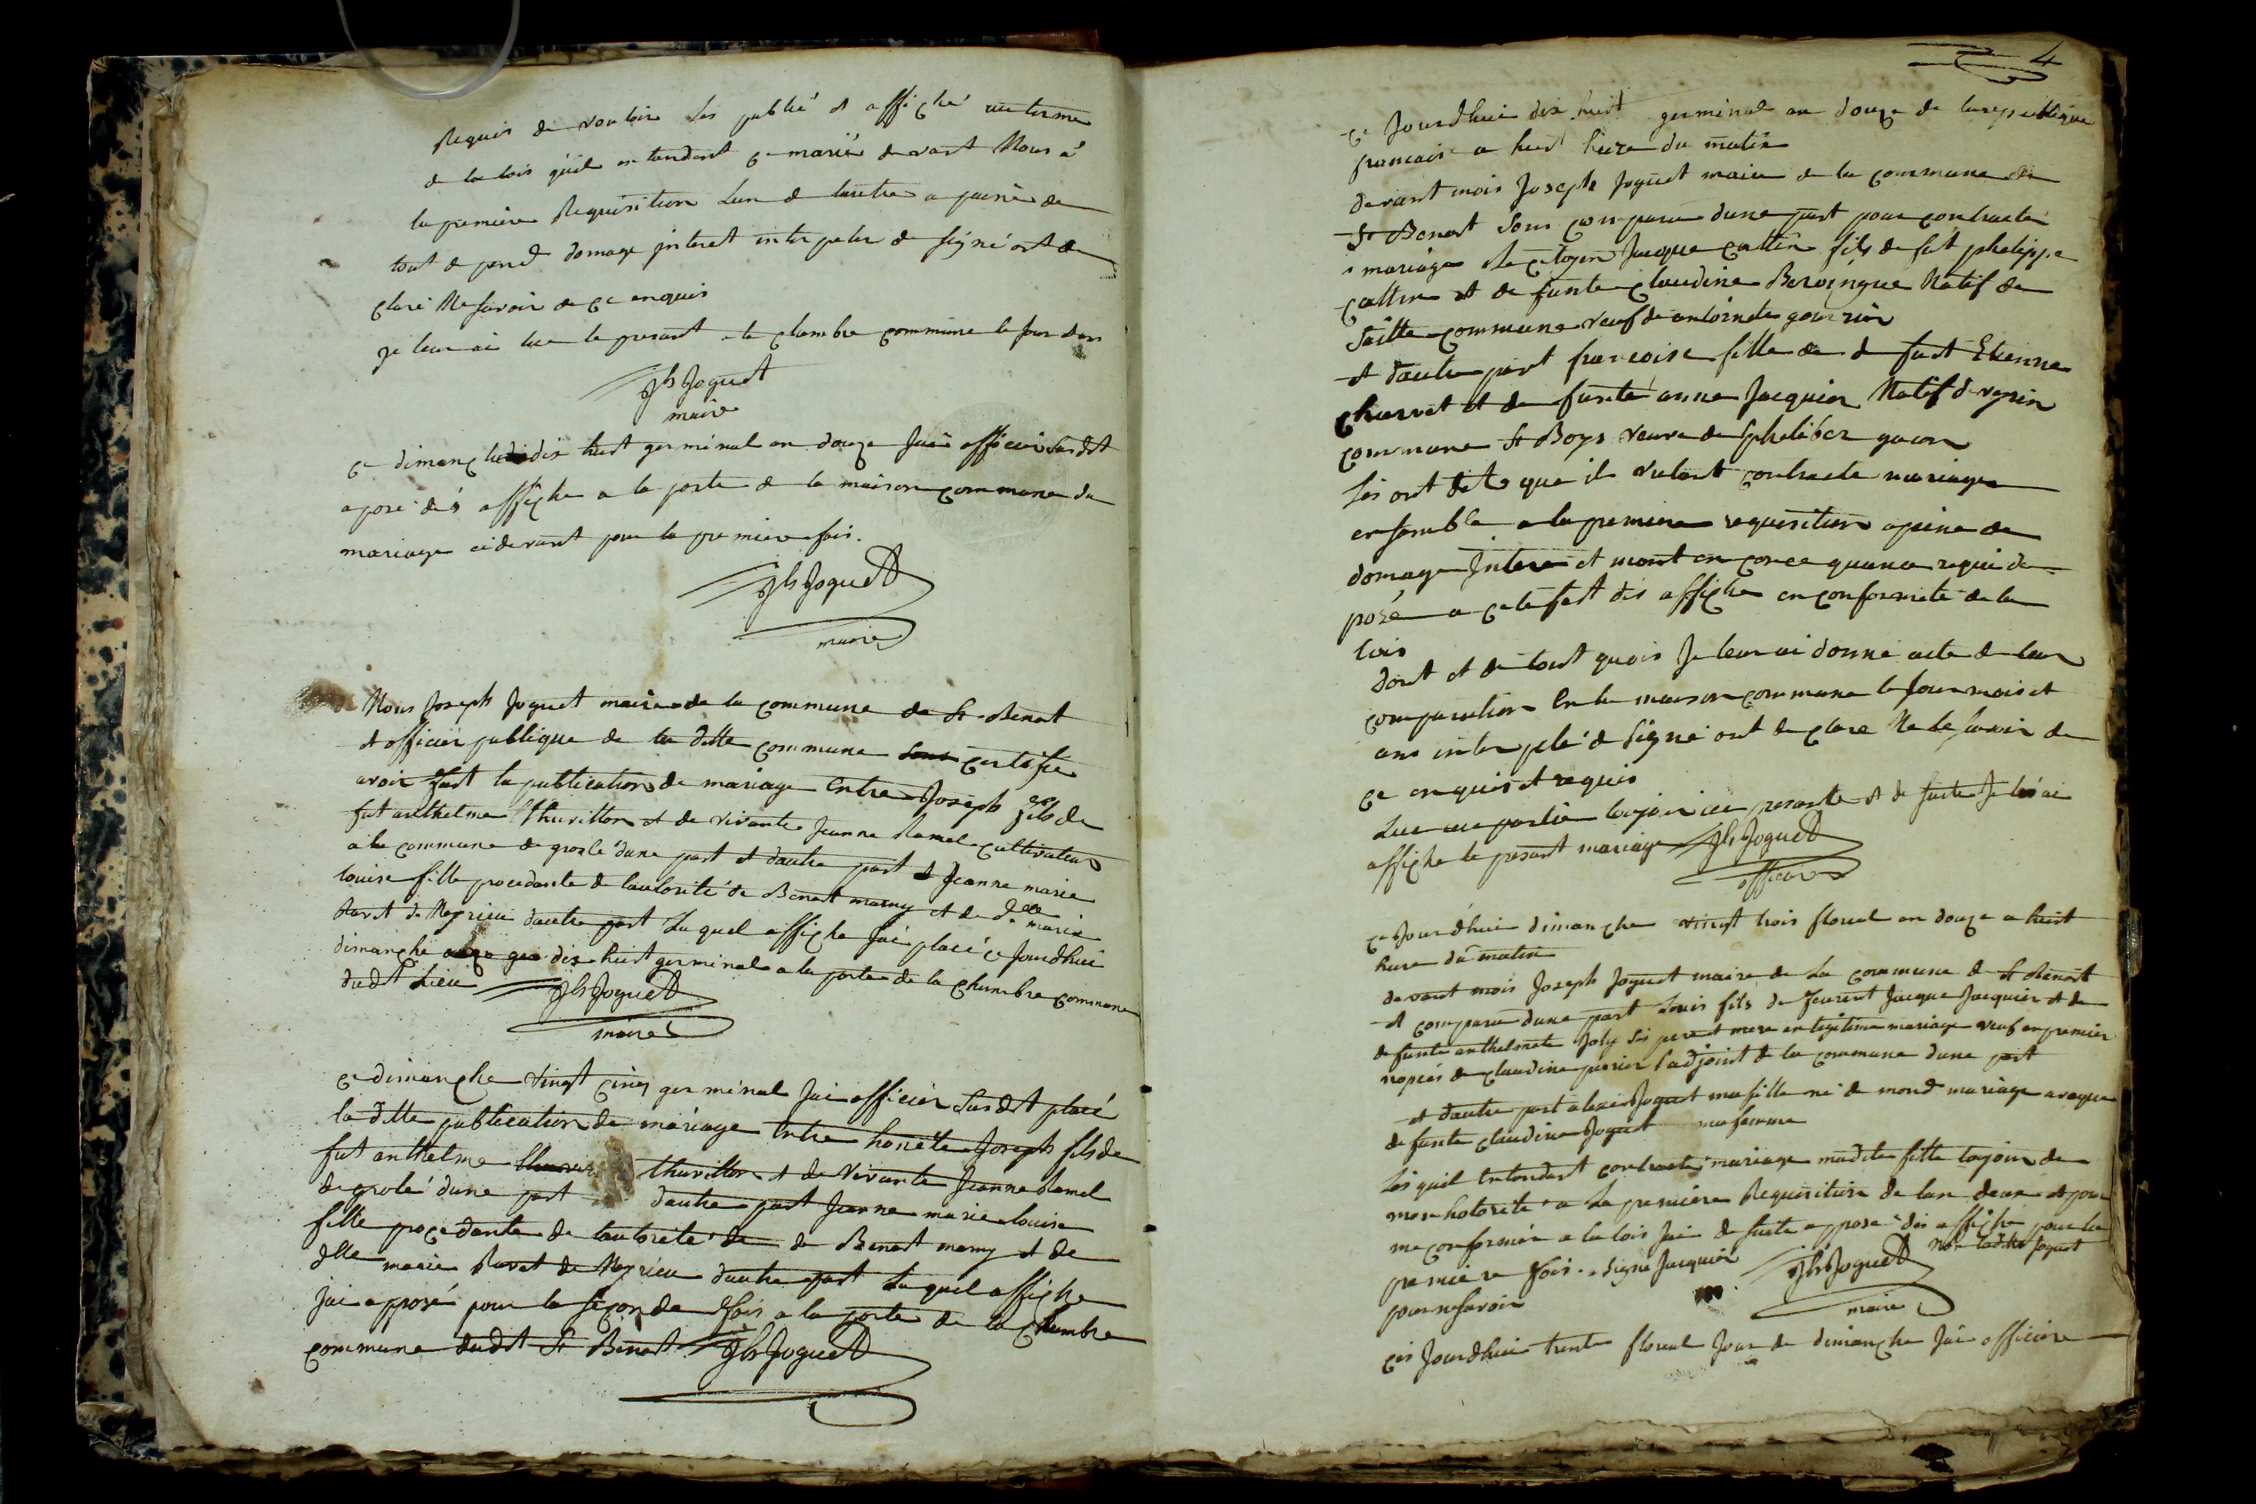 Requis de vouloir les publié et affiché au terme
de la lois qu'il entendent ce marié devant Nous a
la premiere Requisition lun de lautre a paine de
tout depend domage interet interpeler de signé ont de
claré Ne savoir de ce enquis
je leur ai lue le presant a la chambre commune le jour dans
Jh Joguet
maire
ce dimanche dix huit germinal an douze Jai officier susdit
aposé des affiche a la porte de la maison commune du
mariage cidevant pour la premiere fois.
Jh Joguet
maire
Nous Joseph Joguet maire de la commune de St Benoit
et officier publique de la ditte commune certifie
avoir fait la publication de mariage Entre Joseph fils de
fut anthelme thuvillon et de vivante Jeanne Ramel cultivateur
a la commune de grolé dune part et dautre part Jeanne marie
louise fille procedante de lautorité de Benoit mamy et de dlle marie
Ravet de Neyrieu dautre part Laquel affiche Jai placé ce Jourdhui
dimanche dix huit germinal a la porte de la chambre commune
dudit Lieu Jh Joguet
maire
ce dimanche vingt cinq germinal Jai officier susdit placé
la ditte publication de mariage Entre honete Joseph fils de
fut anthelme thuvillon et de vivante Jeanne Ramel
de grolé dune part dautre part Jeanne marie louise
fille procedante de lautorité de de Benoit mamy et de
dlle marie Ravet de Neyrieu dautre part Laquel affiche
jai apposé pour la seconde fois a la porte de la chambre
commune dudit St Benoit Jh Joguet
4
ce Jourdhui dix huit germinal an douze de la republique
francaise a huit heure du matin
devant mois Joseph Joguet maire de la commune de
St Benoit sons comparu dune part pour contracter
mariage Le citoyen Jacque cattin fils de fut phelippe
cattin et de funte claudine Natif de
ditte commune veuf de
et dautre part francoise fille de de fut Etienne
charvet et de funte anne Jacquier Natif de
commune St Boys veuve de
Les ont dit que il vulent contracte mariage
ensemble a la premiere requisition apeine de
domage Interet et mont en concequance requi de
posé a cete fet des affiche en conformité de la
lois
dont et de tout quois Je leur ai donné acte de leur
comparution En la maison commune le jour mois et
ans interpelé de signé ont declare Ne le savoir de
ce enquis et requis
Lue au partie toujour presante et de suite Je lés ai
affiche le presant mariage Jh Joguet
officier
ce Jourdhui dimanche vingt trois floreal an douze a huit
heure du matin
devant mois Joseph Joguet maire de La commune de St Benoit
et comparu dune part Louis fils de Jacque Jacquier et de
de funte anthelmete Joly ses pere et mere en legitime mariage veuf en premier
nopces de claudine perrier l'adjoint de la commune dune part
et dautre part Joguet ma fille né de mond mariage aveque
de funte claudine Joguet ma femme
Les quil Entendent contracté mariage madite fille toujour de
mon hotorité a La premiere Requisition de lun deux et pour
me conformér a la lois Jai de suite apposé des affiche pour la
premiere fois. signé Jacquier Jh Joguet non ladite Joguet
pour ne savoir
maire
ces Jourdhui trente floreal Jour de dimanche Jai officiere